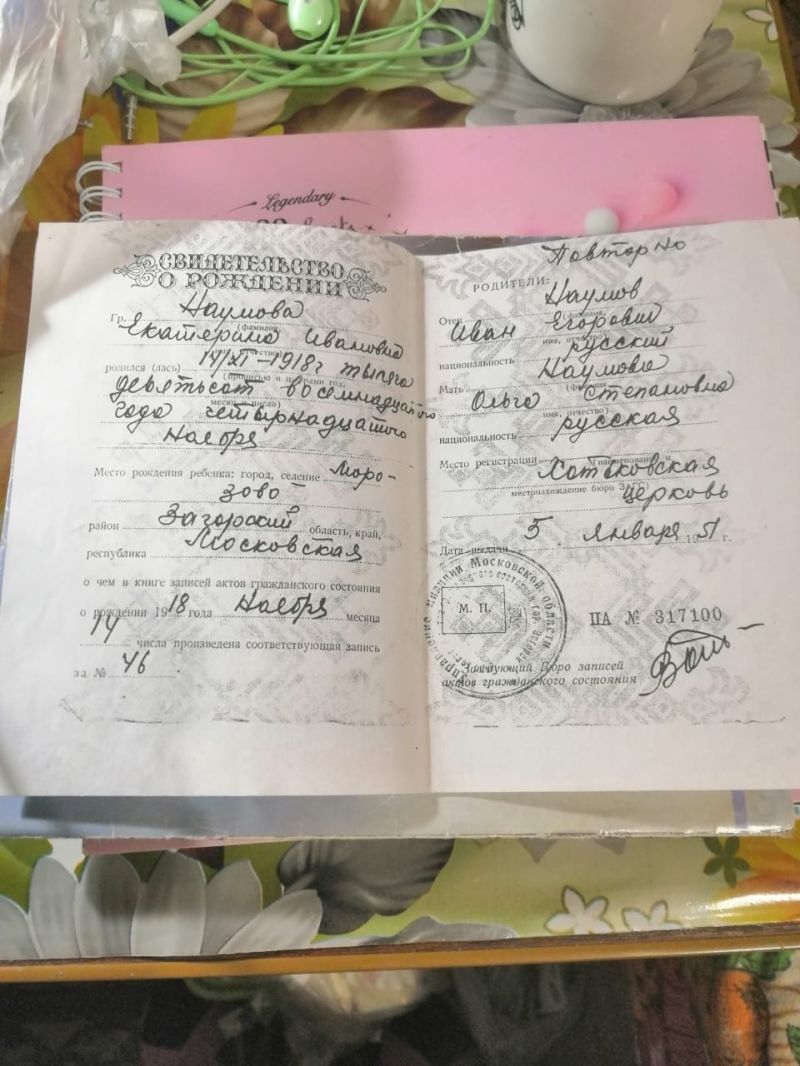 Legendary
СВИДЕТЕЛЬСТВО
О РОЖДЕНИИ
Гр. Наумова
(фамилия
Екатерина Ивановна
родился (лась) 14/XI-1918г тысяча
(прописью и цифрами год,
девятьсот восемнадцатого
месяц и число)
года четырнадцатого
Ноября
Место рождения ребенка: город, селение Моро-
зово
район Загорский область, край,
республика Московская
о чем в книге записей актов гражданского состояния
о рождении 1918 года Ноября месяца
14 числа произведена соответствующая запись
за № 46
Повторно
РОДИТЕЛИ:
Отец Наумов
(фамилия,
Иван Егорович
имя, отчество)
национальность русский
Мать Наумова
(фамилия,
Ольга Степановна
имя, отчество)
национальность русская
Место регистрации Хотьковская
(наименование и
местонахождение бюро ЗАГС)
церковь
Дата выдачи 5 января 1951 г.
М. П.
ПА № 317100
Заведующий Бюро записей
актов гражданского состояния